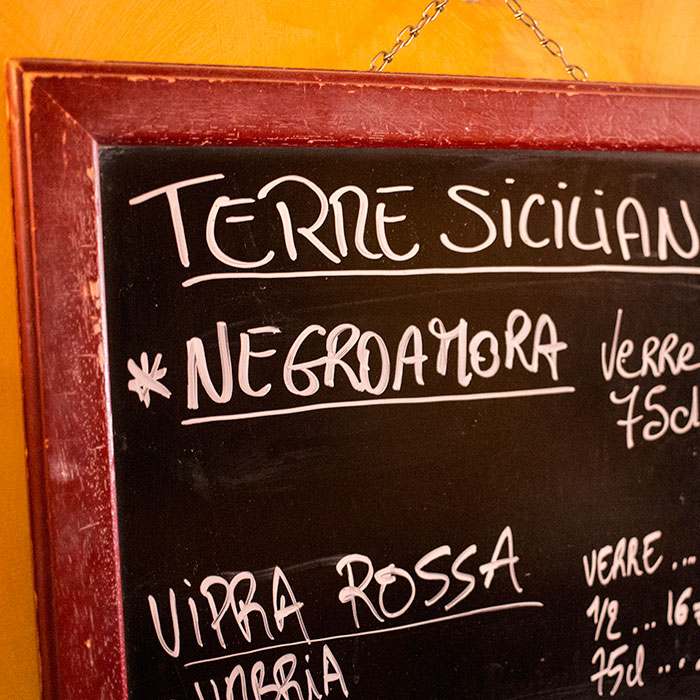 TERRE SICILIAN
*NEGROAMORA verre
75cl
VIPRA ROSSA VERRE ...
1/2 ... 16
UMBRIA 75cl ...